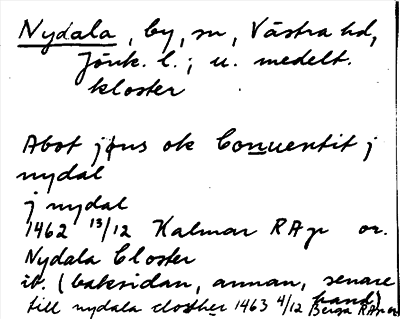 Nydala, by, sn, Västra hd,
Jönk. l.; u. medelt.
kloster
Abot jöns ok Conuentit j
nydal
j nydal
1462 13/12 Kalmar RAp or.
Nydala Closter
ib. (baksidan, annan, senare
hand)
till nydala closther 1463 4/12 Berga RAp or